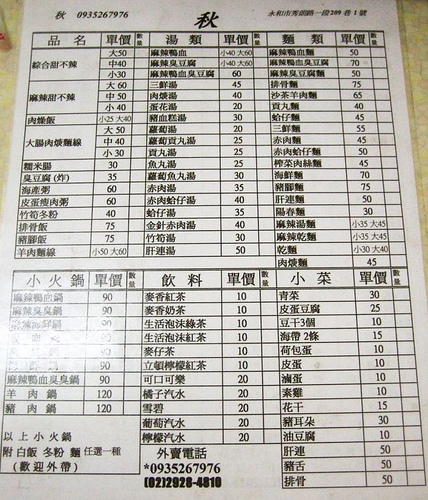 秋 0935267976 秋 永和市秀朗路一段209巷1號
品名 單價 數量 湯類 單價 數量 麵類 單價 數量
綜合甜不辣 大50 麻辣鴨血 小40 大60 麻辣鴨血麵 50
中40 麻辣臭豆腐 小40 大60 麻辣鴨血臭豆腐麵 70
小30 麻辣鴨血臭豆腐 60 麻辣臭豆腐麵 50
麻辣甜不辣 大60 三鮮湯 45 排骨麵 75
中50 肉焿湯 40 沙茶羊肉麵 65
小40 蛋花湯 20 貢丸麵 40
肉燥飯 小25 大40 豬血糕湯 30 蛤仔麵 45
大腸肉焿麵線 大50 蘿蔔湯 20 三鮮麵 55
中40 蘿蔔貢丸湯 25 赤肉麵 45
小30 貢丸湯 20 赤肉蛤仔麵 50
糯米腸 30 魚丸湯 20 榨菜肉絲麵 45
臭豆腐(炸) 35 蘿蔔魚丸湯 30 海鮮麵 70
海產粥 60 赤肉湯 35 豬腳麵 75
皮蛋瘦肉粥 60 赤肉蛤仔湯 40 肝連麵 50
竹筍冬粉 40 蛤仔湯 35 陽春麵 30
排骨飯 75 金針赤肉湯 40 麻辣湯麵 小35 大45
豬腳飯 75 竹筍湯 30 麻辣乾麵 小35 大45
羊肉麵線 小50 大60 肝連湯 50 乾麵 小30 大40
肉焿麵 45
小火鍋 單價 數量 飲料 單價 數量 小菜 單價 數量
麻辣鴨血鍋 90 麥香紅茶 10 青菜 30
麻辣臭臭鍋 90 麥香奶茶 10 皮蛋豆腐 25
90 生活泡沫綠茶 10 豆干3個 10
90 生活泡沫紅茶 10 海帶2條 15
90 麥仔茶 10 荷包蛋 10
90 立頓檸檬紅茶 10 皮蛋 10
麻辣鴨血臭臭鍋 90 可口可樂 20 滷蛋 10
羊肉鍋 120 橘子汽水 20 素雞 10
豬肉鍋 120 雪碧 20 花干 15
葡萄汽水 20 豬耳朵 30
以上小火鍋 檸檬汽水 20 油豆腐 10
附白飯 冬粉 麵 任選一種 外賣電話 肝連 50
(歡迎外帶) *0935267976 豬舌 50
(02)2928-4810 排骨 50